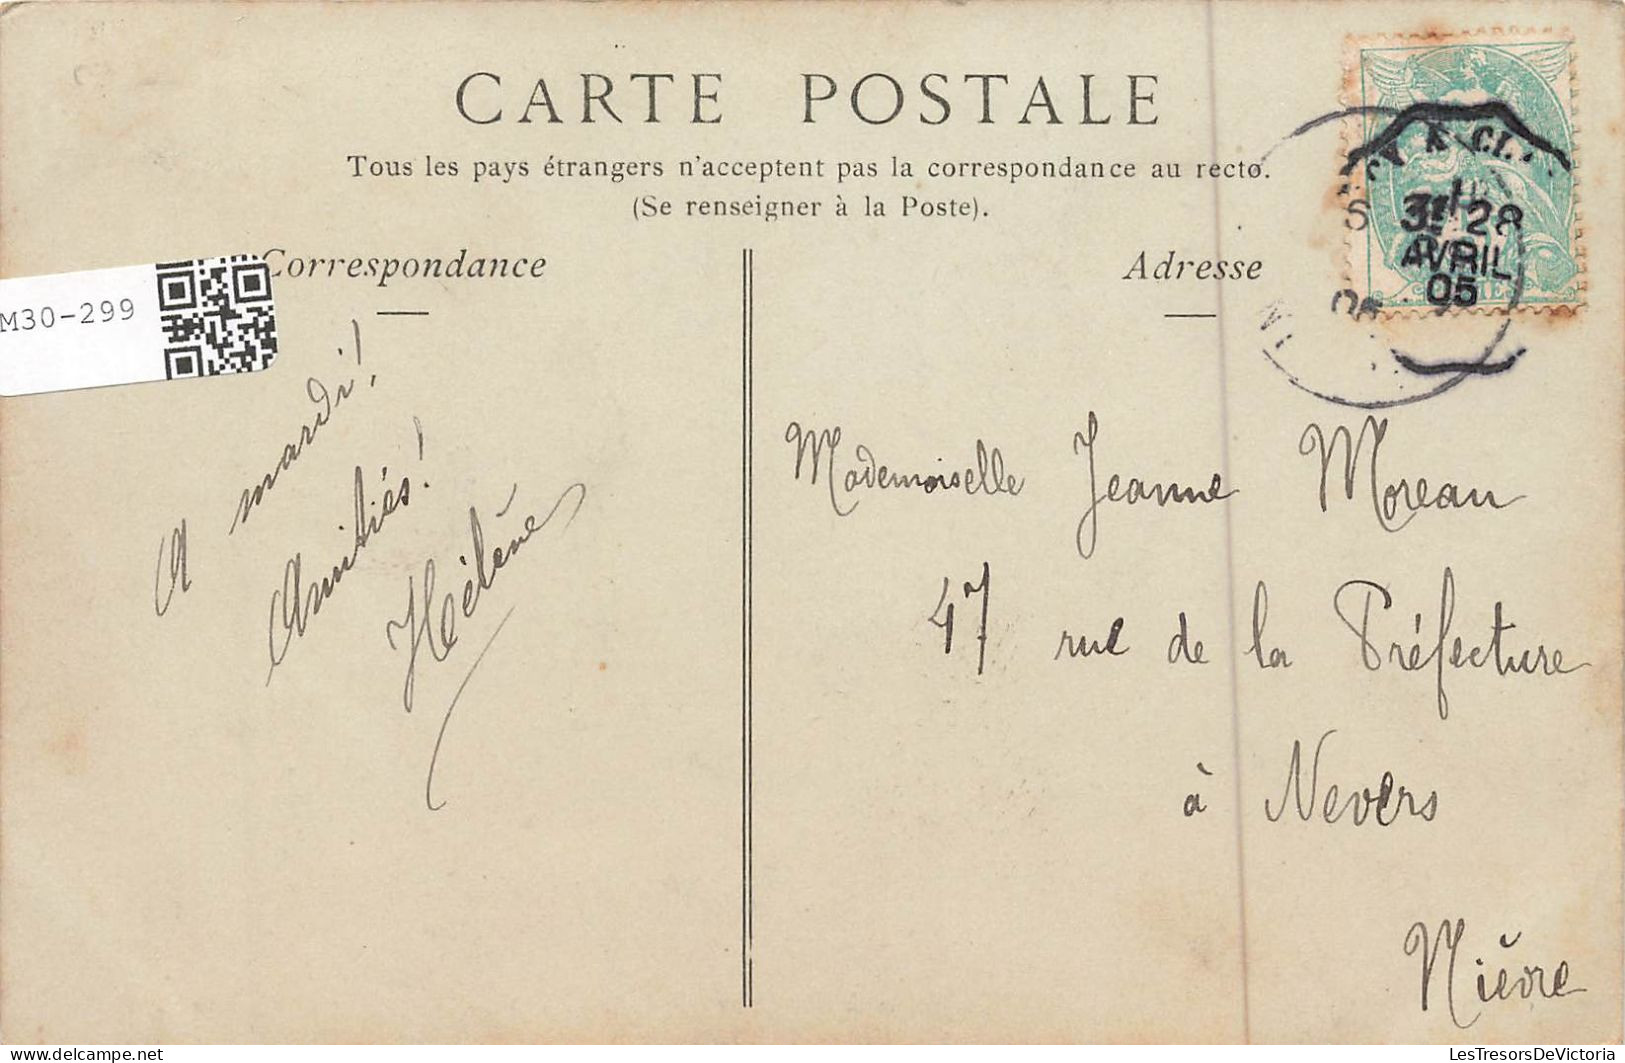 CARTE POSTALE
Tous les pays étrangers n'acceptent pas la correspondance au recto.
(Se renseigner à la Poste).
Correspondance
Adresse
M30-299
A mardi!
Amitiés!
Hélène
28
AVRIL
05
Mademoiselle Jeanne Moreau
47 rue de la Préfecture
à Nevers
Nièvre
LesTresorsDeVictoria